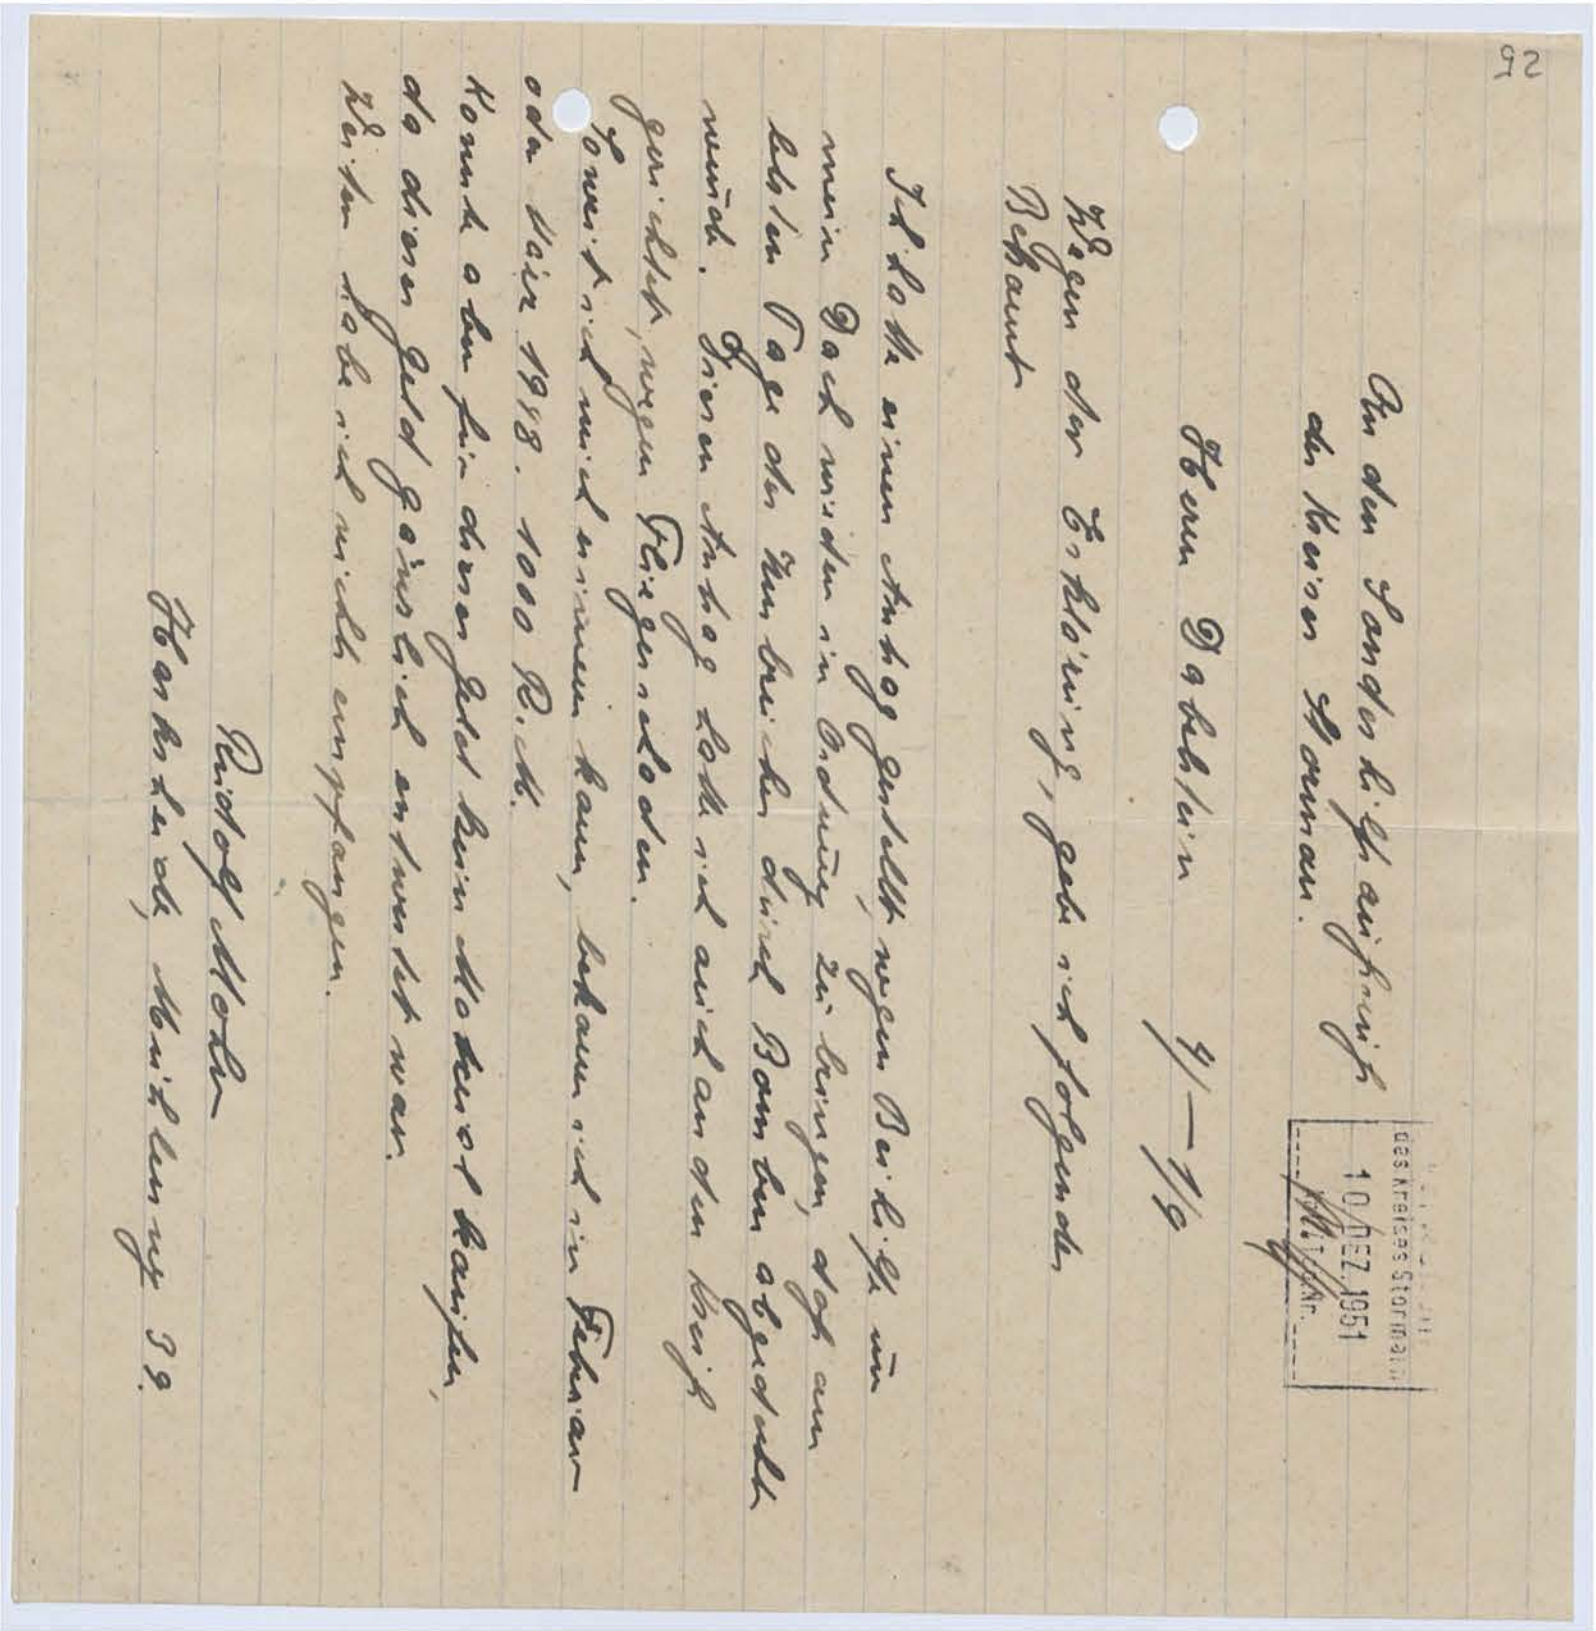 25
An den Sonderhilfsausschuß
des Kreises Stormarn.
des Kreises Stormarn
10. DEZ. 1951
Herrn Dabelstein
4/— 1/9
Wegen der Erklärung, gebe ich folgendes
Bekannt
Ich hatte einen Antrag gestellt, wegen Beihilfe um
mein Dach wieder in Ordnung zu bringen, daß am
letzten Tage des durch Bomben abgedeckt
wurde. Diesen Antrag hatte ich auch an den Kreis
gerichtet, wegen Fliegerschaden.
Soweit ich mich erinnern kann, bekam ich im Februar
oder März 1948. 1000 R.M.
Konnte aber für dieses Geld kein Material kaufen,
da dieses Geld gänzlich entwertet war.
Weiter habe ich nichts empfangen.
Rudolf Mohr
Harksheide, Mühlenweg 39.